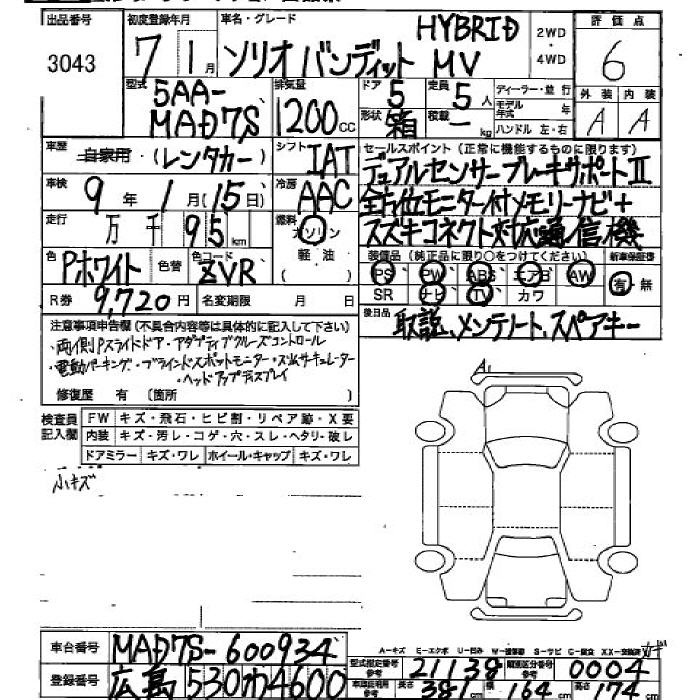 出品番号 初度登録年月 車名・グレード HYBRID 2WD・4WD 評価点
3043 7 1月 ソリオバンディット MV 6
型式 5AA-MAD7S 排気量 1200cc ドア 5 定員 5人 ディーラー・並行
形状 箱 積載 ー kg モデル年式 年 ハンドル 左・右
外装 内装
A A
車歴 自家用・(レンタカー) シフト IAT
セールスポイント(正常に機能するものに限ります)
車検 9年1月(15日) 冷房 AAC
デュアルセンサーブレーキサポートⅡ
全方位モニター付メモリーナビ+
スズキコネクト対応通信機
走行 万 千 95km 燃料 ガソリン 軽油( )
色 Pホワイト 色替 色コード ZVR
装備品(純正品に限り○をつけてください) 新車保証書
PS PW ABS エアB AW 有・無
SR ナビ TV カワ
R券 9,720円 名変期限 月 日
後日品 取説、メンテノート、スペアキー
注意事項申告欄(不具合内容等は具体的に記入して下さい)
・両側Pスライドドア・アダプティブクルーズコントロール
・電動パーキング・ブラインドスポットモニター・スリムサーキュレーター
・ヘッドアップディスプレイ
修復歴 有(箇所 )
検査員記入欄 FW キズ・飛石・ヒビ割・リペア跡・X要
内装 キズ・汚レ・コゲ・穴・スレ・ヘタリ・破レ
ドアミラー キズ・ワレ ホイール・キャップ キズ・ワレ
A1
小キズ
車台番号 MAD7S-600934
A-キズ E-エクボ U-凹み S-サビ
型式指定番号 参考 21138 類別区分番号 参考 0004
登録番号 広島 530 わ 4600
長さ 381cm 幅 164cm 高さ 174cm